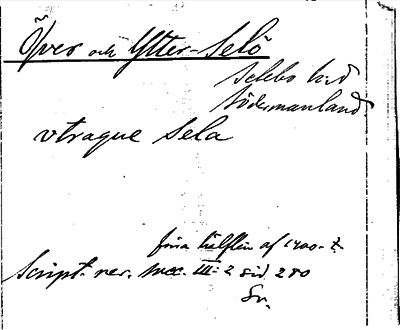 Över och Ytter-Selö
Selebo h:d
Södermanland
vtraque Sela
förra hälften af 1400-t.
Script. rer. svec. III: 2 sid 280
Sv.